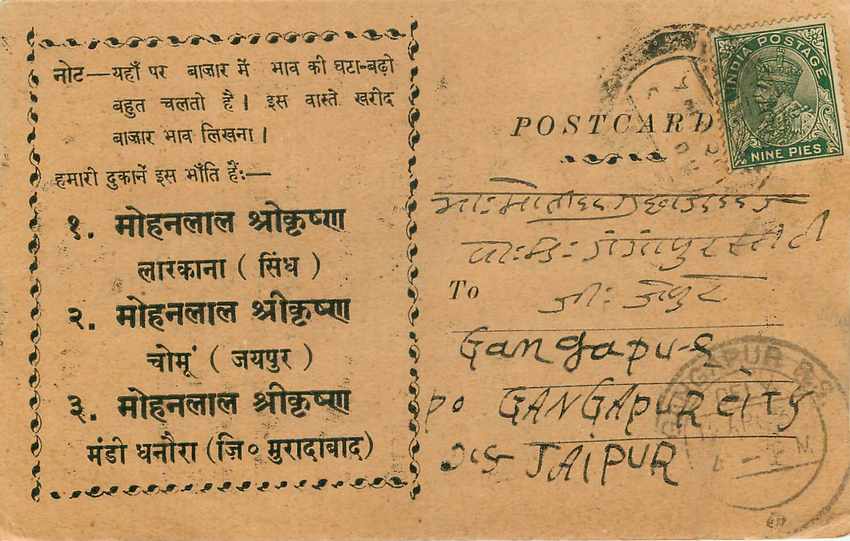 नोट—यहाँ पर बाजार में भाव की घटा-बढ़ी
बहुत चलती है। इस वास्ते खरीद
बाजार भाव लिखना।
हमारी दुकानें इस भाँति हैं:—
१. मोहनलाल श्रीकृष्ण
लारकाना ( सिंध )
२. मोहनलाल श्रीकृष्ण
चोमूं ( जयपुर )
३. मोहनलाल श्रीकृष्ण
मंडी धनौरा (जि० मुरादाबाद)
INDIA POSTAGE
NINE PIES
POSTCARD
गंगापुर सीटी
To
Gangapur
PO GANGAPUR CITY
JAIPUR
GANGAPUR R.S.